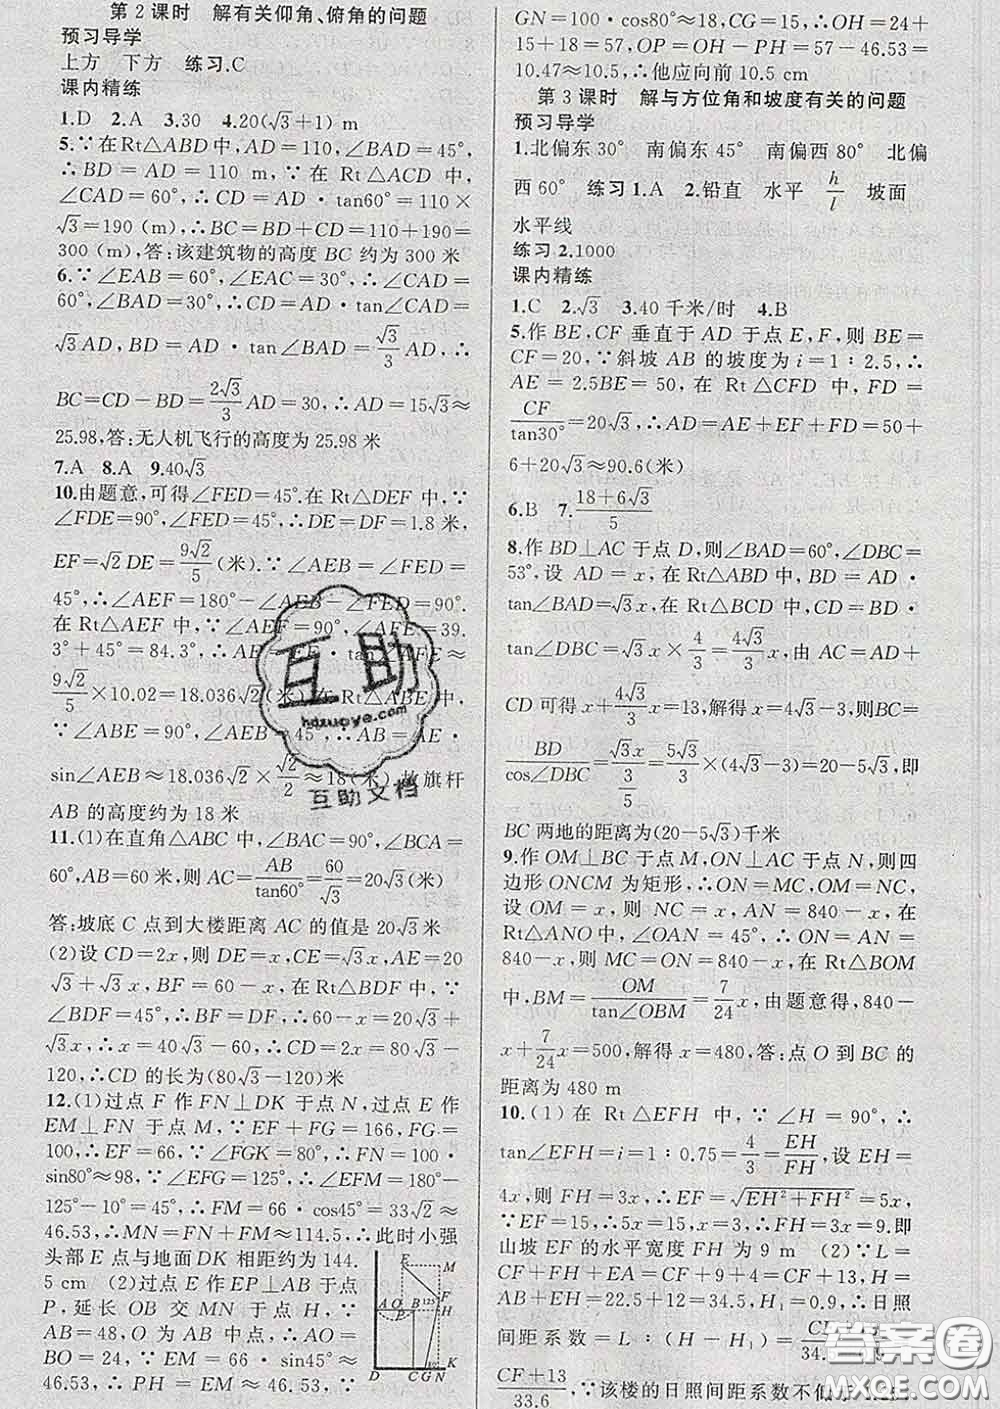 第2课时 解有关仰角、俯角的问题
预习导学
上方 下方 练习.C
课内精练
1.D 2.A 3.30 4.20(√3+1) m
5.∵在Rt△ABD中,AD=110,∠BAD=45°,
∴BD=AD=110 m,∵在 Rt△ACD 中,
∠CAD=60°,∴CD=AD·tan60°=110×
√3=190 (m),∴BC=BD+CD=110+190=
300 (m),答:该建筑物的高度 BC 约为 300 米
6.∵∠EAB=60°,∠EAC=30°,∴∠CAD=
60°,∠BAD=30°,∴CD=AD·tan∠CAD=
√3AD,BD=AD·tan∠BAD=√3/3 AD,∴
BC=CD-BD=2√3/3 AD=30,∴AD=15√3≈
25.98,答:无人机飞行的高度为 25.98 米
7.A 8.A 9.40√3
10.由题意,可得∠FED=45°.在Rt△DEF中,∵
∠FDE=90°,∠FED=45°,∴DE=DF=1.8米,
EF=√2DE=9√2/5(米).∵∠AEB=∠FED=
45°,∴∠AEF=180°-∠AEB-∠FED=90°.
在Rt△AEF中,∵∠AEF=90°,∠AFE=39.
3°+45°=84.3°,∴AE=EF·tan∠AFE≈
9√2/5×10.02=18.036√2(米).在Rt△ABE中,
∵∠ABE=90°,∠AEB=45°,∴AB=AE·
sin∠AEB≈18.036√2×√2/2≈18(米).故旗杆
AB的高度约为18米
11.(1)在直角△ABC中,∠BAC=90°,∠BCA=
60°,AB=60米,则AC=AB/tan60°=60/√3=20√3(米)
答:坡底C点到大楼距离AC的值是20√3米
(2)设CD=2x,则DE=x,CE=√3x,AE=20
√3+√3x,BF=60-x,在Rt△BDF中,∵
∠BDF=45°,∴BF=DF,∴60-x=20√3+
√3x,∴x=40√3-60,∴CD=2x=80√3-
120,∴CD的长为(80√3-120)米
12.(1)过点F作FN⊥DK于点N,过点E作
EM⊥FN于点M,∵EF+FG=166,FG=
100,∴EF=66,∵∠FGK=80°,∴FN=100·
sin80°≈98,∵∠EFG=125°,∴∠EFM=180°-
125°-10°=45°,∴FM=66·cos45°=33√2≈
46.53,∴MN=FN+FM≈114.5,∴此时小强
头部E点与地面DK相距约为144.
5 cm (2)过点E作EP⊥AB于点
P,延长OB交MN于点H,∵
AB=48,O为AB中点,∴AO=
BO=24,∵EM=66·sin45°≈
46.53,∴PH=EM≈46.53,∵
E M
F
A O B 125° H
P
D C G N K
GN=100·cos80°≈18,CG=15,∴OH=24+
15+18=57,OP=OH-PH=57-46.53=
10.47≈10.5,∴他应向前10.5 cm
第3课时 解与方位角和坡度有关的问题
预习导学
1.北偏东30° 南偏东45° 南偏西80° 北偏
西60° 练习1.A 2.铅直 水平 h/l 坡面
水平线
练习2.1000
课内精练
1.C 2.√3 3.40千米/时 4.B
5.作BE,CF垂直于AD于点E,F,则BE=
CF=20,∵斜坡AB的坡度为i=1∶2.5,∴
AE=2.5BE=50,在Rt△CFD中,FD=
CF/tan30°=20√3,∴AD=AE+EF+FD=50+
6+20√3≈90.6(米)
6.B 7.(18+6√3)/5
8.作BD⊥AC于点D,则∠BAD=60°,∠DBC=
53°,设AD=x,在Rt△ABD中,BD=AD·
tan∠BAD=√3x,在Rt△BCD中,CD=BD·
tan∠DBC=√3x×4/3=4√3/3 x,由AC=AD+
CD可得x+4√3/3 x=13,解得x=4√3-3,则BC=
BD/cos∠DBC=√3x/(3/5)=5√3/3×(4√3-3)=20-5√3,即
BC两地的距离为(20-5√3)千米
9.作OM⊥BC于点M,ON⊥AC于点N,则四
边形ONCM为矩形,∴ON=MC,OM=NC,
设OM=x,则NC=x,AN=840-x,在
Rt△ANO中,∠OAN=45°,∴ON=AN=
840-x,则MC=ON=840-x,在Rt△BOM
中,BM=OM/tan∠OBM=7/24 x,由题意得,840-
x+7/24 x=500,解得x=480,答:点O到BC的
距离为480 m
10.(1)在Rt△EFH中,∵∠H=90°,∴
tan∠EFH=i=1∶0.75=4/3=EH/FH,设EH=
4x,则FH=3x,∴EF=√(EH²+FH²)=5x,
∵EF=15,∴5x=15,x=3,∴FH=3x=9.即
山坡EF的水平宽度FH为9 m (2)∵L=
CF+FH+EA=CF+9+4=CF+13,H=
AB+EH=22.5+12=34.5,H₁=0.9,∴日照
间距系数=L∶(H-H₁)=
CF+13/33.6,∵该楼的日照间距系数不低于
互助
hdzuoye.com
互助文档
答案圈
MXQE.COM